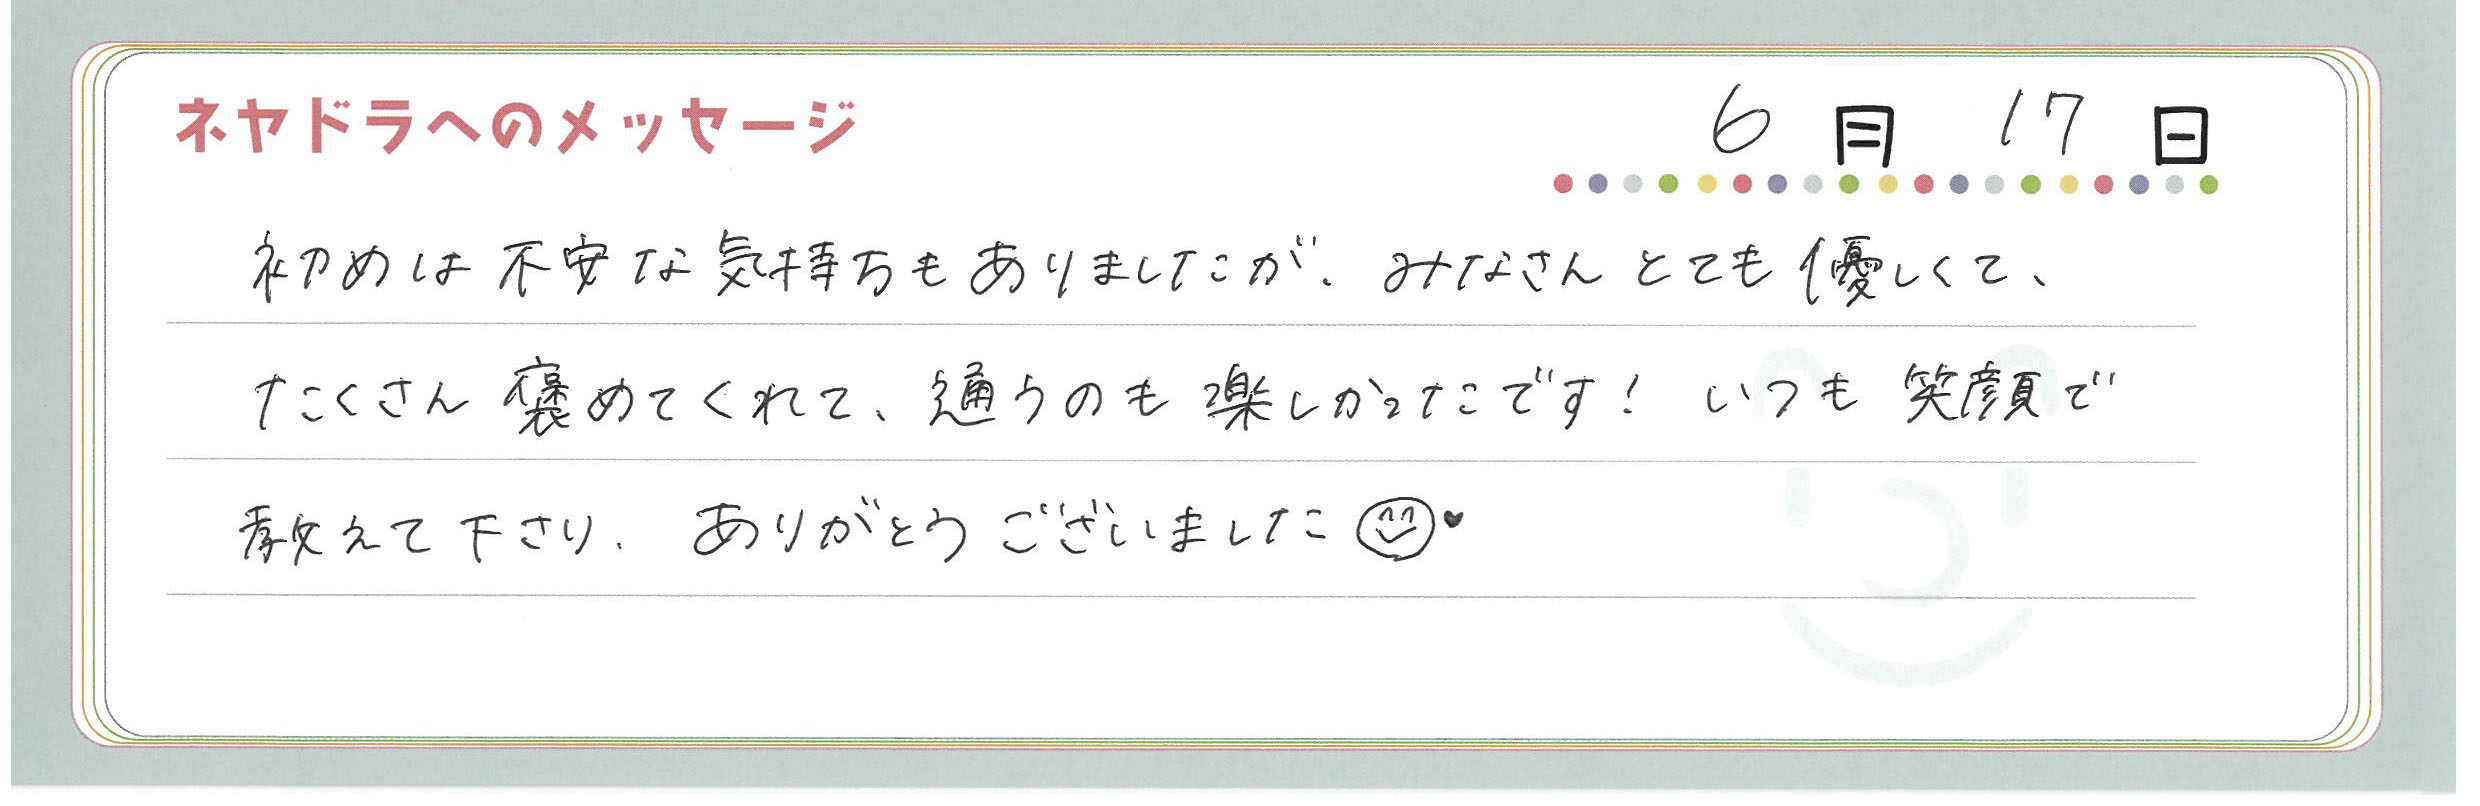 ネヤドラへのメッセージ
6月 17日
初めは不安な気持ちもありましたが、みなさんとても優しくて、
たくさん褒めてくれて、通うのも楽しかったです! いつも笑顔で
教えて下さり、ありがとうございました